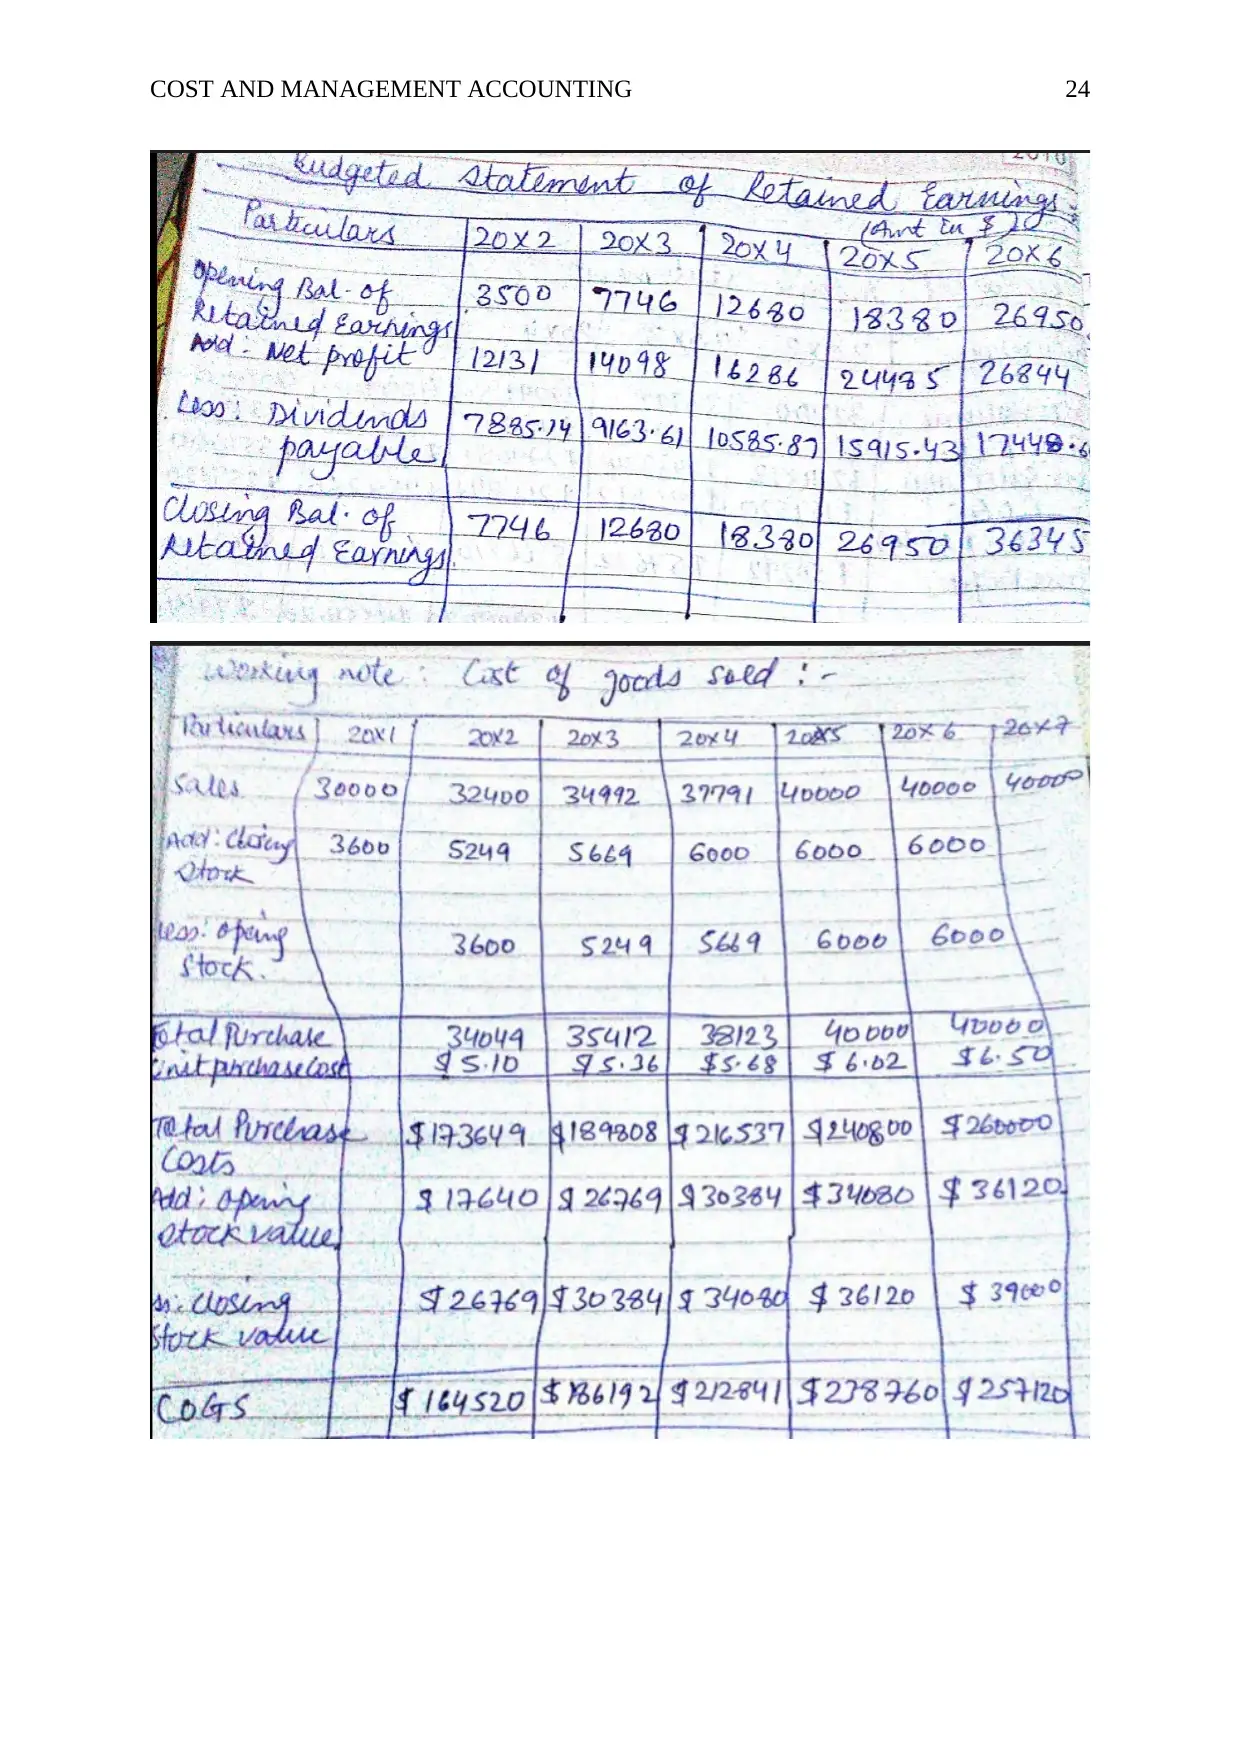 COST AND MANAGEMENT ACCOUNTING 24
Budgeted Statement of Retained Earnings
(Amt in $)
Particulars 20X2 20X3 20X4 20X5 20X6
Opening Bal. of
Retained Earnings 3500 7746 12680 18380 26950
Add: Net profit 12131 14098 16286 24485 26844
Less: Dividends
payable 7885.14 9163.61 10585.87 15915.43 17448.6
Closing Bal. of
Retained Earnings 7746 12680 18380 26950 36345
Working note: Cost of goods sold :-
Particulars 20X1 20X2 20X3 20X4 20X5 20X6 20X7
Sales 30000 32400 34992 37791 40000 40000 40000
Add: Closing
Stock 3600 5249 5669 6000 6000 6000
Less: Opeing
Stock. 3600 5249 5669 6000 6000
Total Purchase 34049 35412 38123 40000 40000
Unit purchase Cost $5.10 $5.36 $5.68 $6.02 $6.50
Total Purchase
Costs $173649 $189808 $216537 $240800 $260000
Add: Opening
Stock value $17640 $26769 $30384 $34080 $36120
ss: closing
Stock value $26769 $30384 $34080 $36120 $39000
COGS $164520 $186192 $212841 $238760 $257120